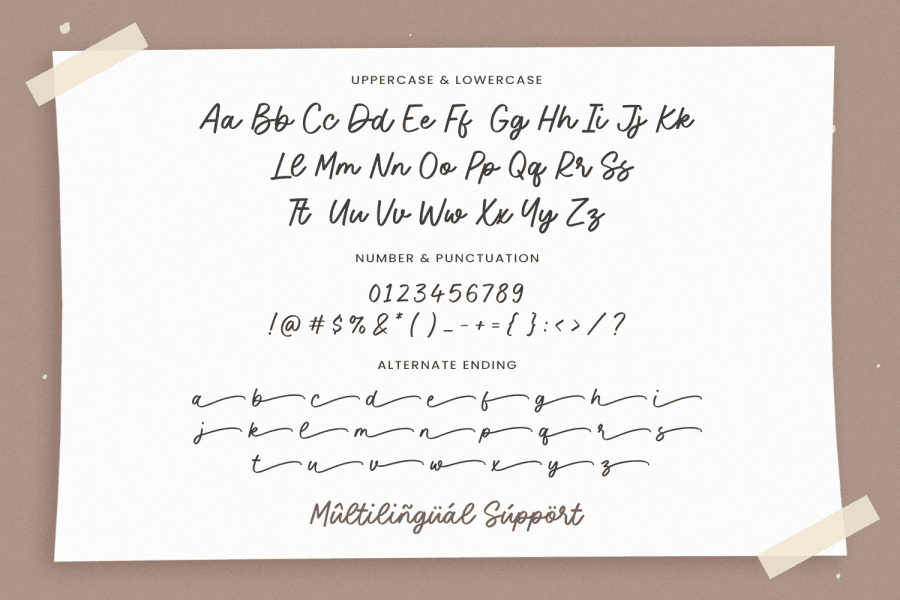 UPPERCASE & LOWERCASE
Aa Bb Cc Dd Ee Ff Gg Hh Ii Jj Kk
Ll Mm Nn Oo Pp Qq Rr Ss
Tt Uu Vv Ww Xx Yy Zz
NUMBER & PUNCTUATION
0123456789
!@#$%&*()_-+={}:<>/?
ALTERNATE ENDING
a b c d e f g h i
j k l m n p q r s
t u v w x y z
Mûltilîñgüál Súppört